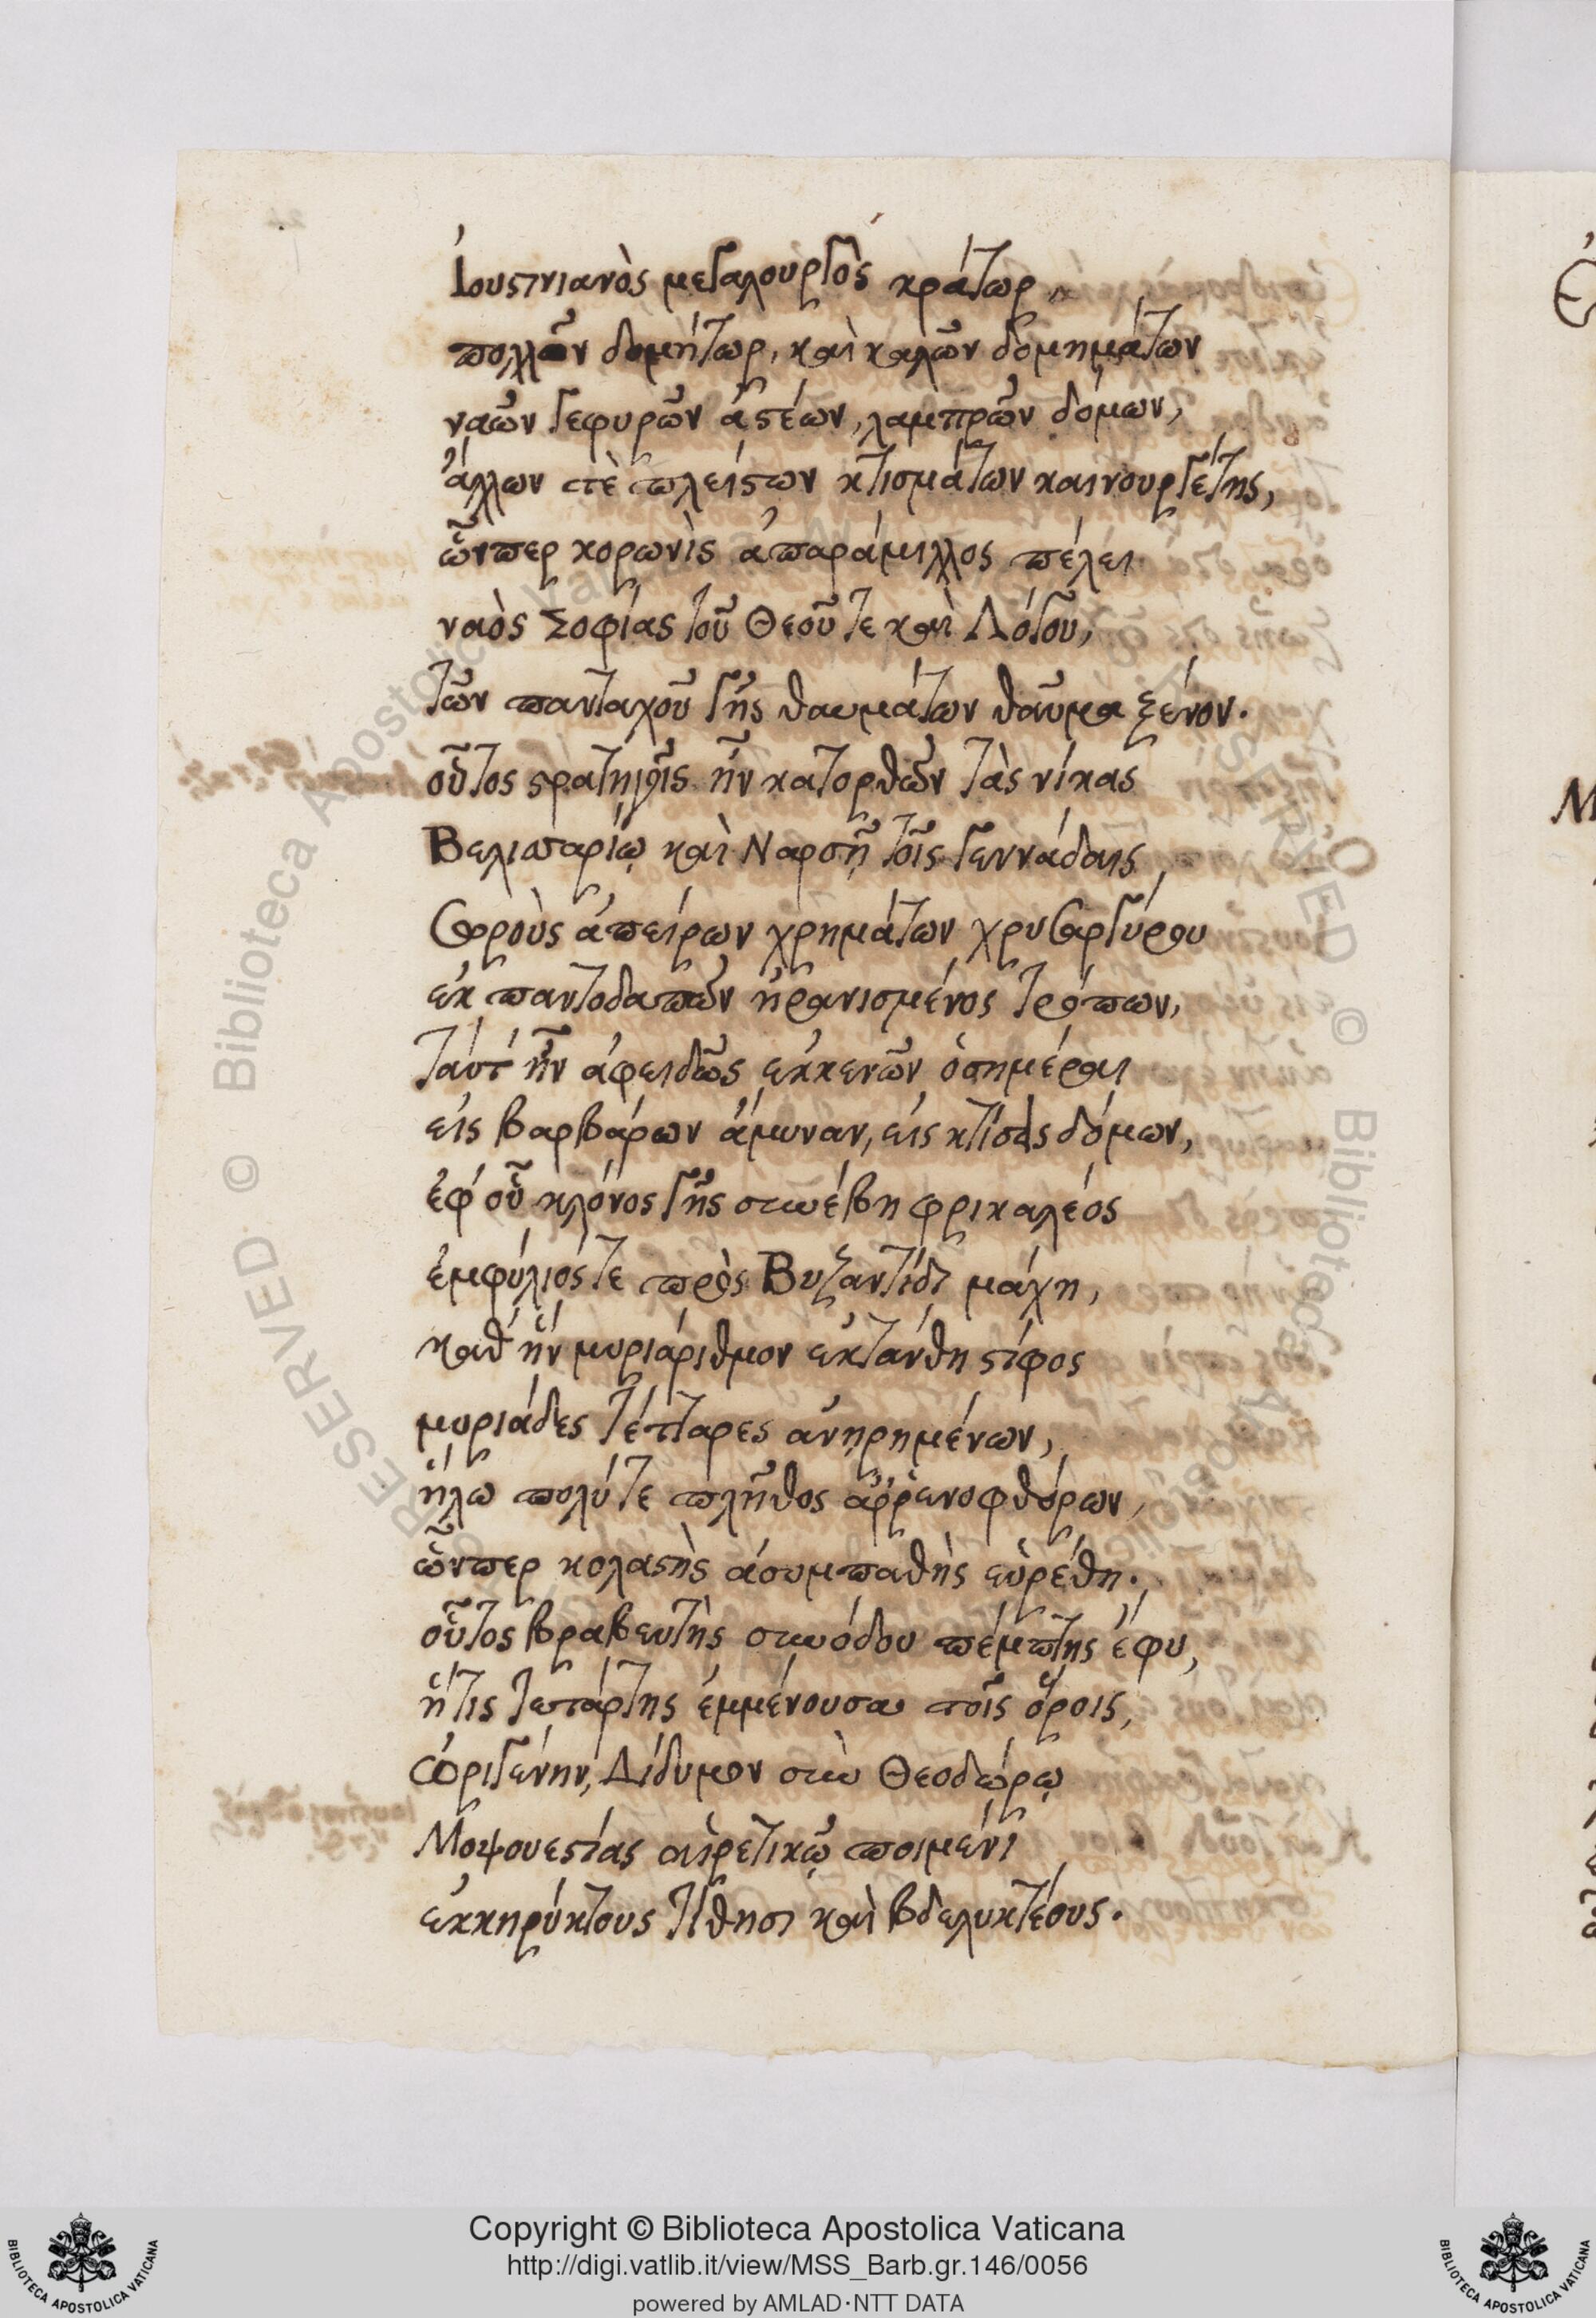 Ἰουστινιανὸς μεγαλουργὸς κράτωρ
πολλῶν δομήτωρ, καὶ καλῶν δομημάτων
ναῶν γεφυρῶν ἀστέων, λαμπρῶν δόμων,
ἄλλων τὲ πλείστων κτισμάτων καινουργέτης,
ὧνπερ κορωνὶς ἀπαράμιλλος πέλει
ναὸς Σοφίας τοῦ Θεοῦ τε καὶ Λόγου,
τῶν πανταχοῦ γῆς θαυμάτων θαῦμα ξένον.
οὗτος στρατηγοῖς ἦν κατορθῶν τὰς νίκας
Βελισαρίῳ καὶ Ναρσῇ τοῖς γεννάδαις
σωροὺς ἀπείρων χρημάτων χρυσαργύρου
ἐκ παντοδαπῶν ἠρανισμένος τρόπων,
ταύτ' ἦν ἀφειδῶς ἐκκενῶν ὁσημέραι
εἰς βαρβάρων ἄμυναν, εἰς κτίσεις δόμων,
ἐφ' οὗ κλόνος γῆς συνέβη φρικαλέος
ἐμφύλιός τε πρὸς Βυζαντίδι μάχη,
καθ' ἣν μυριάριθμον ἐκτάνθη στίφος
μυριάδες τέτταρες ἀνῃρημένων,
ἥλω πολύ τε πλῆθος ἀῤῥενοφθόρων,
ὧνπερ κολαστὴς ἀσυμπαθὴς εὑρέθη.
οὗτος βραβευτὴς συνόδου πέμπτης ἔφυ,
ἥτις τετάρτης ἐμμένουσα τοῖς ὅροις,
Ὠριγένην, Δίδυμον σὺν Θεοδώρῳ
Μοψουεστίας αἱρετικῷ ποιμένι
ἐκκηρύκτους τίθησι καὶ βδελυκτέους.
Copyright © Biblioteca Apostolica Vaticana
http://digi.vatlib.it/view/MSS_Barb.gr.146/0056
powered by AMLAD·NTT DATA